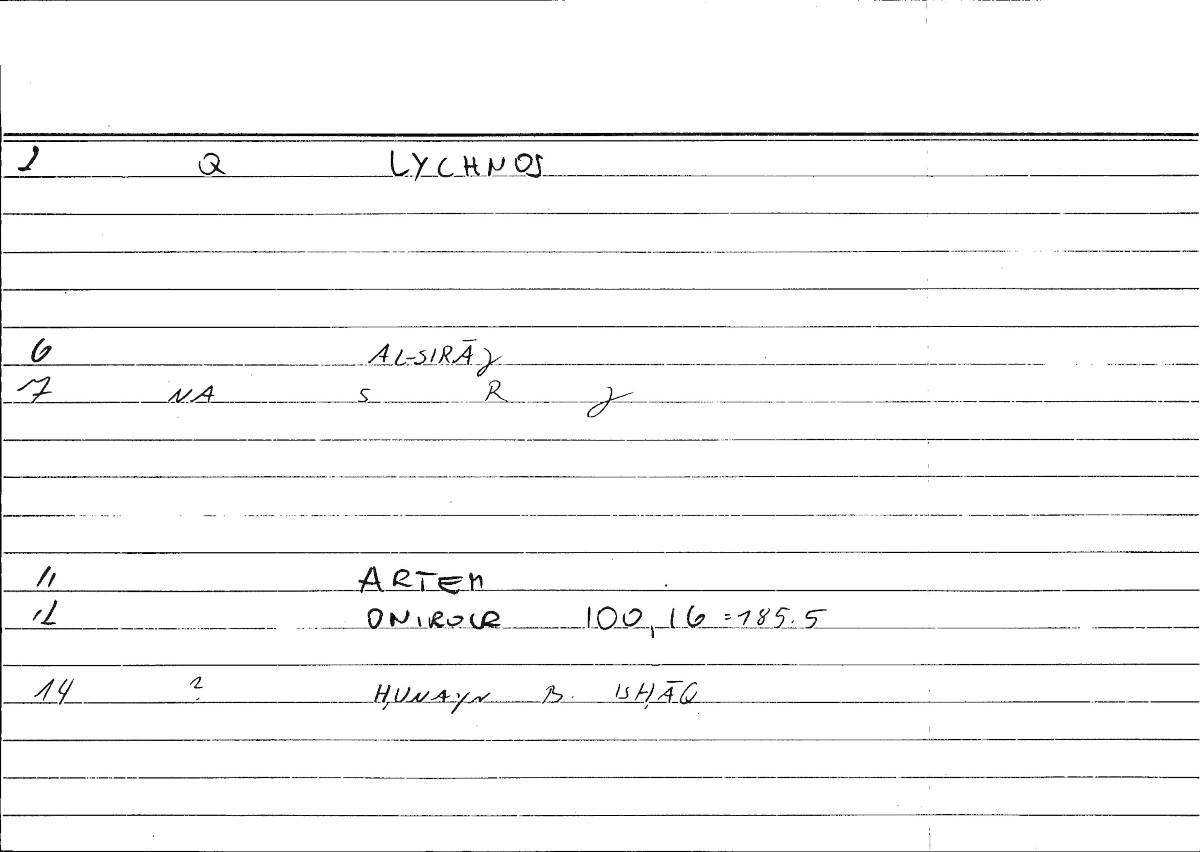 1 Q LYCHNOS
6 AL-SIRĀJ
7 NA S R J
11 ARTEM
12 ONIROCR 100,16 =185.5
14 ? ḤUNAYN B. ISḤĀQ